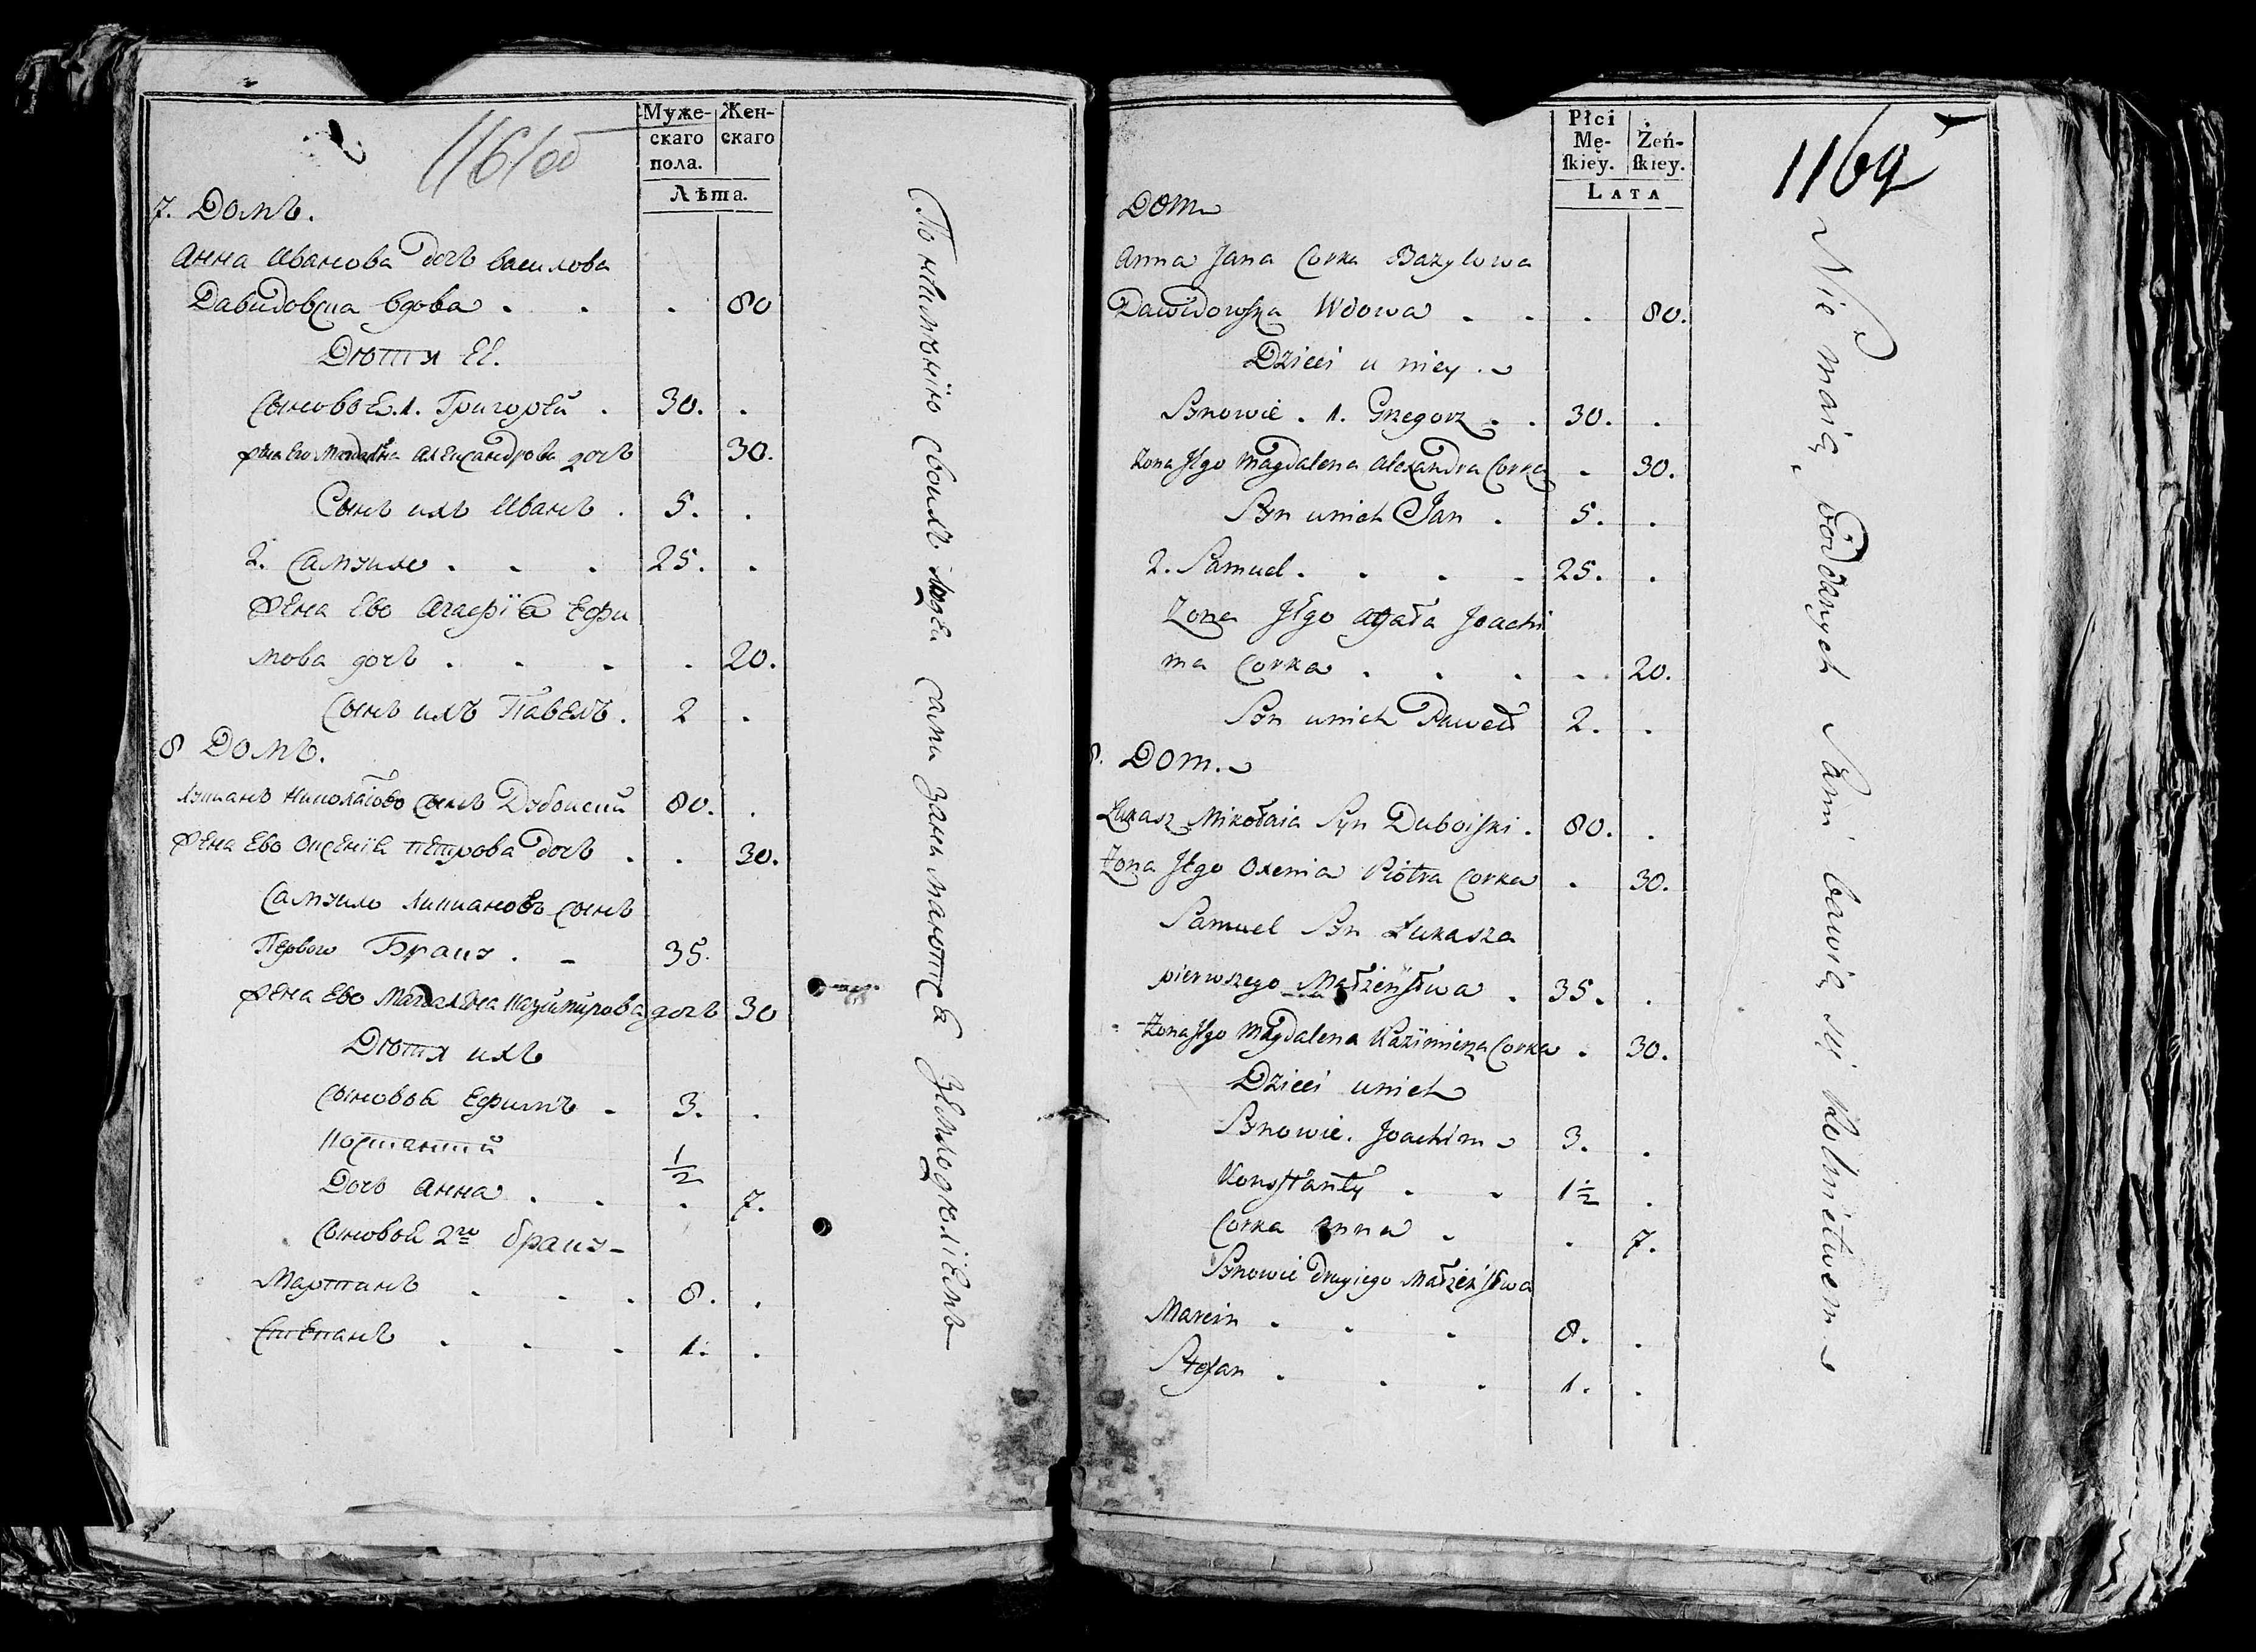 1161об
Муже- Жен-
скаго скаго
пола.
Лѣта.
7. Домъ.
Анна Иванова дочь василова
Давидовска вдова . . . 80
Дѣти Ее.
Сыновѣ Ея. 1. Григорей . 30. .
жена Его Магдалена Александрова дочь 30.
Сынъ ихъ Иванъ . 5. .
2. Самуило . . . 25. .
жена Ево Агафїя Ефи
мова дочь . . . . 20.
Сынъ ихъ Павелъ . 2 .
8 Домъ.
Лукианъ Николаюво сынъ Дубоиский 80. .
жена Ево Оксенїя Петрова дочь . . 30.
Самуило Лукиановъ сынъ
Первого Браку . - 35.
жена Ево Магдалена Казимирова дочь 30
Дѣти ихъ
сыновья Ефимъ - 3. .
Костантий 1/2
Дочь Анна . . . 7.
Сыновья 2го браку -
Мартинъ . . . 8. .
Степанъ . . . 1. .
По неимѣнїю своихъ людей сами занимаются земледѣлїемъ
Płci
Mę- Żeń-
ſkiey. ſkiey.
LATA
1169
Dom
Anna Jana Corka Bazylowa
Dawidowſka Wdowa . . . 80.
Dzieci u niey.
Synowie . 1. Grzegorz . . 30. .
Zona Jego Magdalena Alexandra Corka . 30.
Syn unich Jan . 5. .
2. Samuel . . . . 25. .
Zona Jego Agata Joachi
ma Corka . . . . . 20.
Syn unich Paweł 2. .
8. Dom.
Łukasz Mikołaia Syn Duboiſki . 80. .
Zona Jego Oxenia Piotra Corka . 30.
Samuel Syn Łukasza
pierwszego Małżeńſtwa . 35. .
Zona Jego Magdalena Kazimierza Corka . 30.
Dzieci unich
Synowie. Joachim 3. .
Konſtanty . . 1 1/2 .
Corka Anna . . 7.
Synowie drugiego Małżeńſtwa
Marcin . . . 8. .
Stefan . . . 1. .
Nie maią poddanych Sami bawią się Rolnictwem